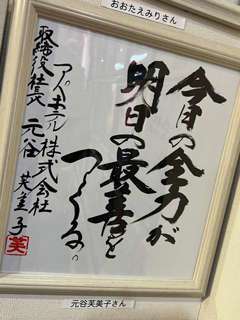 おおたえみりさん
今日の全力が
明日の最善を
つくる。
アパホテル株式会社
取締役社長 元谷芙美子
芙
元谷芙美子さん